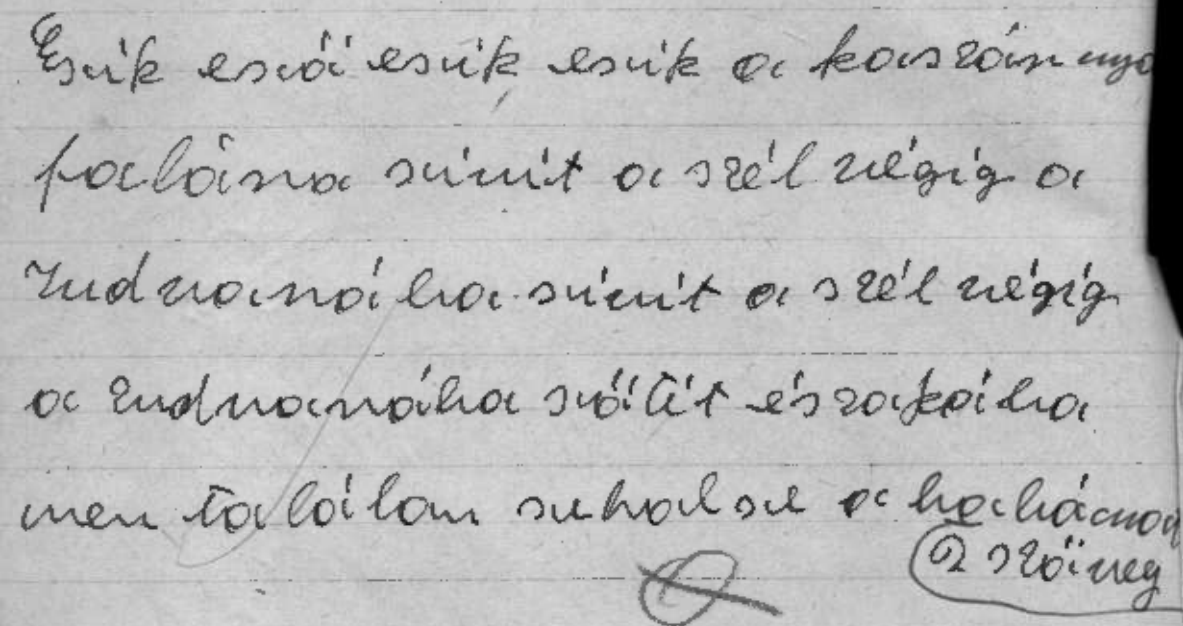 Esik eső esik esik a kaszárnya
falára sivít a szél végig a
zudvarába sivít a szél végig
a zudvarába sőtít északába
nem találom sehol se a babámat
2 szöveg